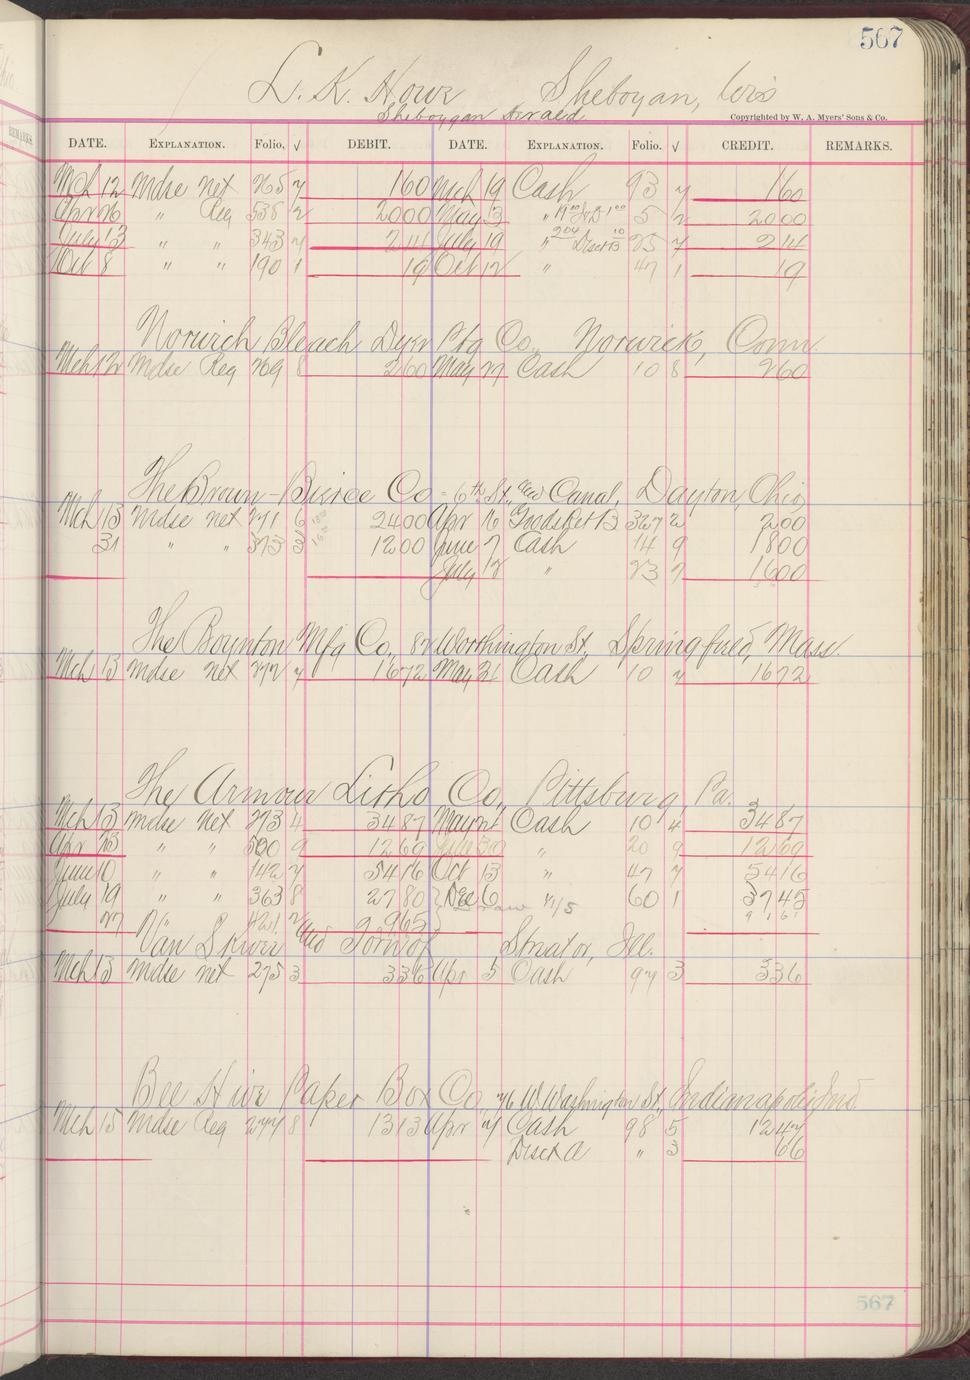 567
L. K. Howe Sheboyan, Wis
Sheboygan Herald
Copyrighted by W. A. Myers' Sons & Co.
DATE. EXPLANATION. Folio. √ DEBIT. DATE. EXPLANATION. Folio. √ CREDIT. REMARKS.
Mch 12 Mdse net 265 7 160 Mch 19 Cash 93 7 160
Apr 26 " Reg 535 2 2000 May 13 " 19 00 1 00 5 2 2000
July 13 " " 343 7 214 July 19 " 2 04 Disct B 10 25 7 214
Oct 8 " " 190 1 19 Oct 12 " 47 1 19
Norwich Bleach Dye & Ptg Co., Norwick, Conn.
Mch 12 Mdse Reg 269 8 260 May 27 Cash 10 8 260
The Brown-Bierce Co - 6th St., and Canal, Dayton, Ohio
Mch 13 Mdse net 271 6 2400 Apr 16 Goods Ret B 327 2 200
31 " " 373 3 1200 June 7 Cash 14 9 1800
July 12 " 23 7 1600
The Boynton Mfg Co., 87 Worthington St., Springfield, Mass
Mch 13 Mdse net 272 7 1672 May 31 Cash 10 7 1672
The Armour Litho Co., Pittsburg, Pa.
Mch 13 Mdse net 273 4 3487 May 21 Cash 10 4 3487
Apr 23 " " 500 9 1269 " 20 9 1269
June 10 " " 142 7 5416 Oct 13 " 47 7 5416
July 19 " " 363 8 2780 Dec 6 " 60 1 3745
27 " " 421 2 965
Van Skiver and Streator, Ill.
Mch 13 Mdse net 275 3 336 Apr 5 Cash 97 3 336
Bee Hive Paper Box Co., 76 W. Washington St., Indianapolis, Ind.
Mch 15 Mdse Reg 277 8 1313 Apr 7 Cash 98 5 1247
Disct A " 3 66
567